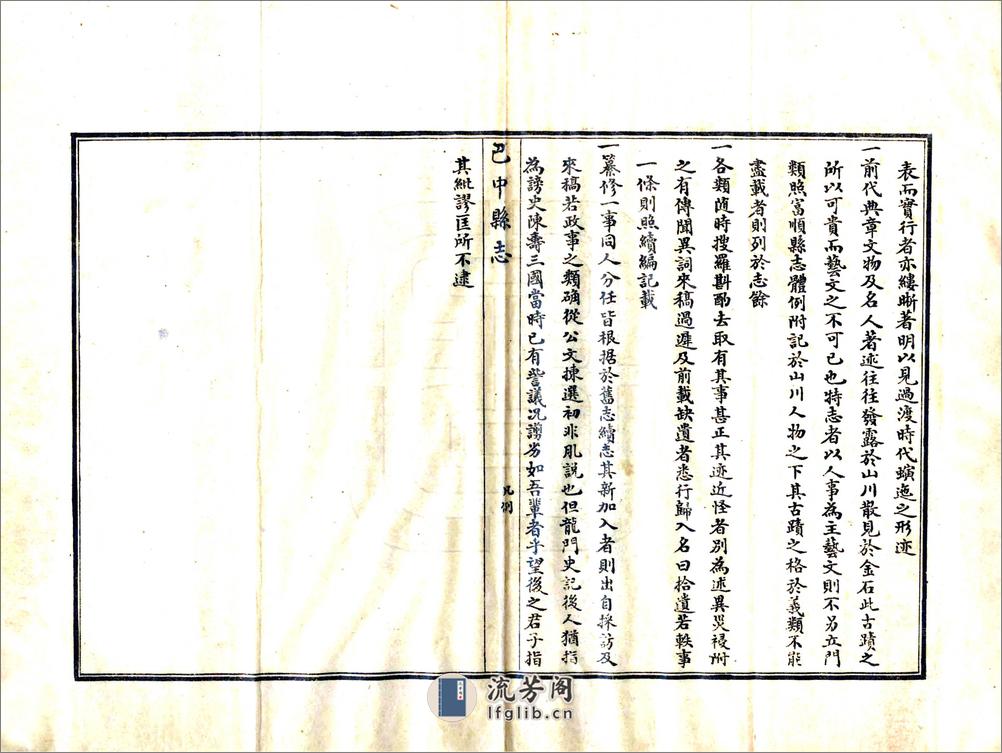 表而實行者亦縷晰著明以見過渡時代蟺迤之形迹
一前代典章文物及名人著述往往發露於山川散見於金石此古蹟之
所以可貴而藝文之不可已也特志者以人事為主藝文則不另立門
類照富順縣志體例附記於山川人物之下其古蹟之格於義類不能
盡載者則列於志餘
一各類隨時搜羅斟酌去取有其事甚正其迹近怪者別為述異災祲附
之有傳聞異詞來稿過遲及前載缺遺者悉行歸入名曰拾遺若軼事
一條則照續編記載
一纂修一事同人分任皆根据於舊志續志其新加入者則出自採訪及
來稿若政事之類确從公文揀選初非凡說也但龍門史記後人猶指
為謗史陳壽三國當時已有訾議况謭劣如吾輩者乎望後之君子指
巴中縣志
凡例
其紕謬匡所不逮
流芳阁
lfglib.cn